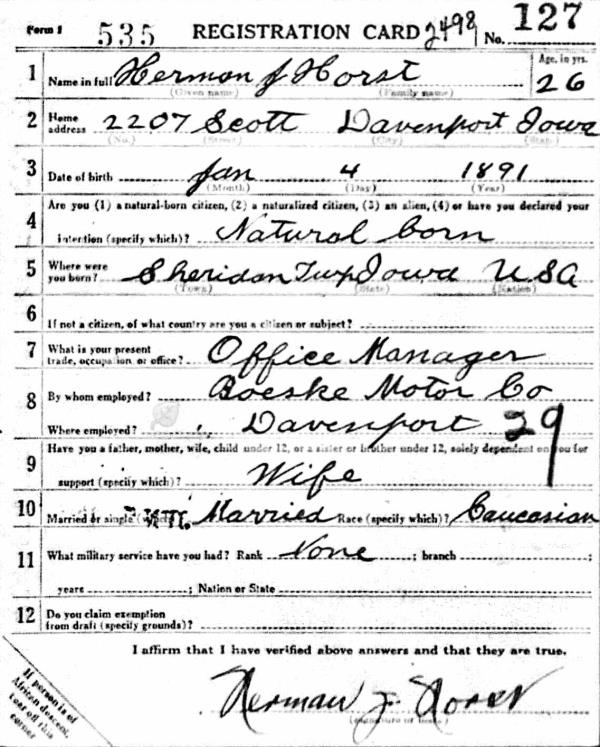 Form 1 535 REGISTRATION CARD 2498 No. 127
1 Name in full Herman J Horst Age, in yrs. 26
(Given name) (Family name)
2 Home address 2207 Scott Davenport Iowa
(No.) (Street) (City) (State)
3 Date of birth Jan 4 1891
(Month) (Day) (Year)
Are you (1) a natural-born citizen, (2) a naturalized citizen, (3) an alien, (4) or have you declared your
4 intention (specify which)? Natural born
5 Where were you born? Sheridan Twp Iowa USA
(Town) (State) (Nation)
6 If not a citizen, of what country are you a citizen or subject?
7 What is your present trade, occupation, or office? Office Manager
8 By whom employed? Boeske Motor Co
Where employed? Davenport 29
Have you a father, mother, wife, child under 12, or a sister or brother under 12, solely dependent on you for
9 support (specify which)? Wife
10 Married or single (which)? Married Race (specify which)? Caucasian
11 What military service have you had? Rank None ; branch ;
years ; Nation or State
12 Do you claim exemption from draft (specify grounds)?
I affirm that I have verified above answers and that they are true.
Herman J. Horst
If person is of African descent, tear off this corner